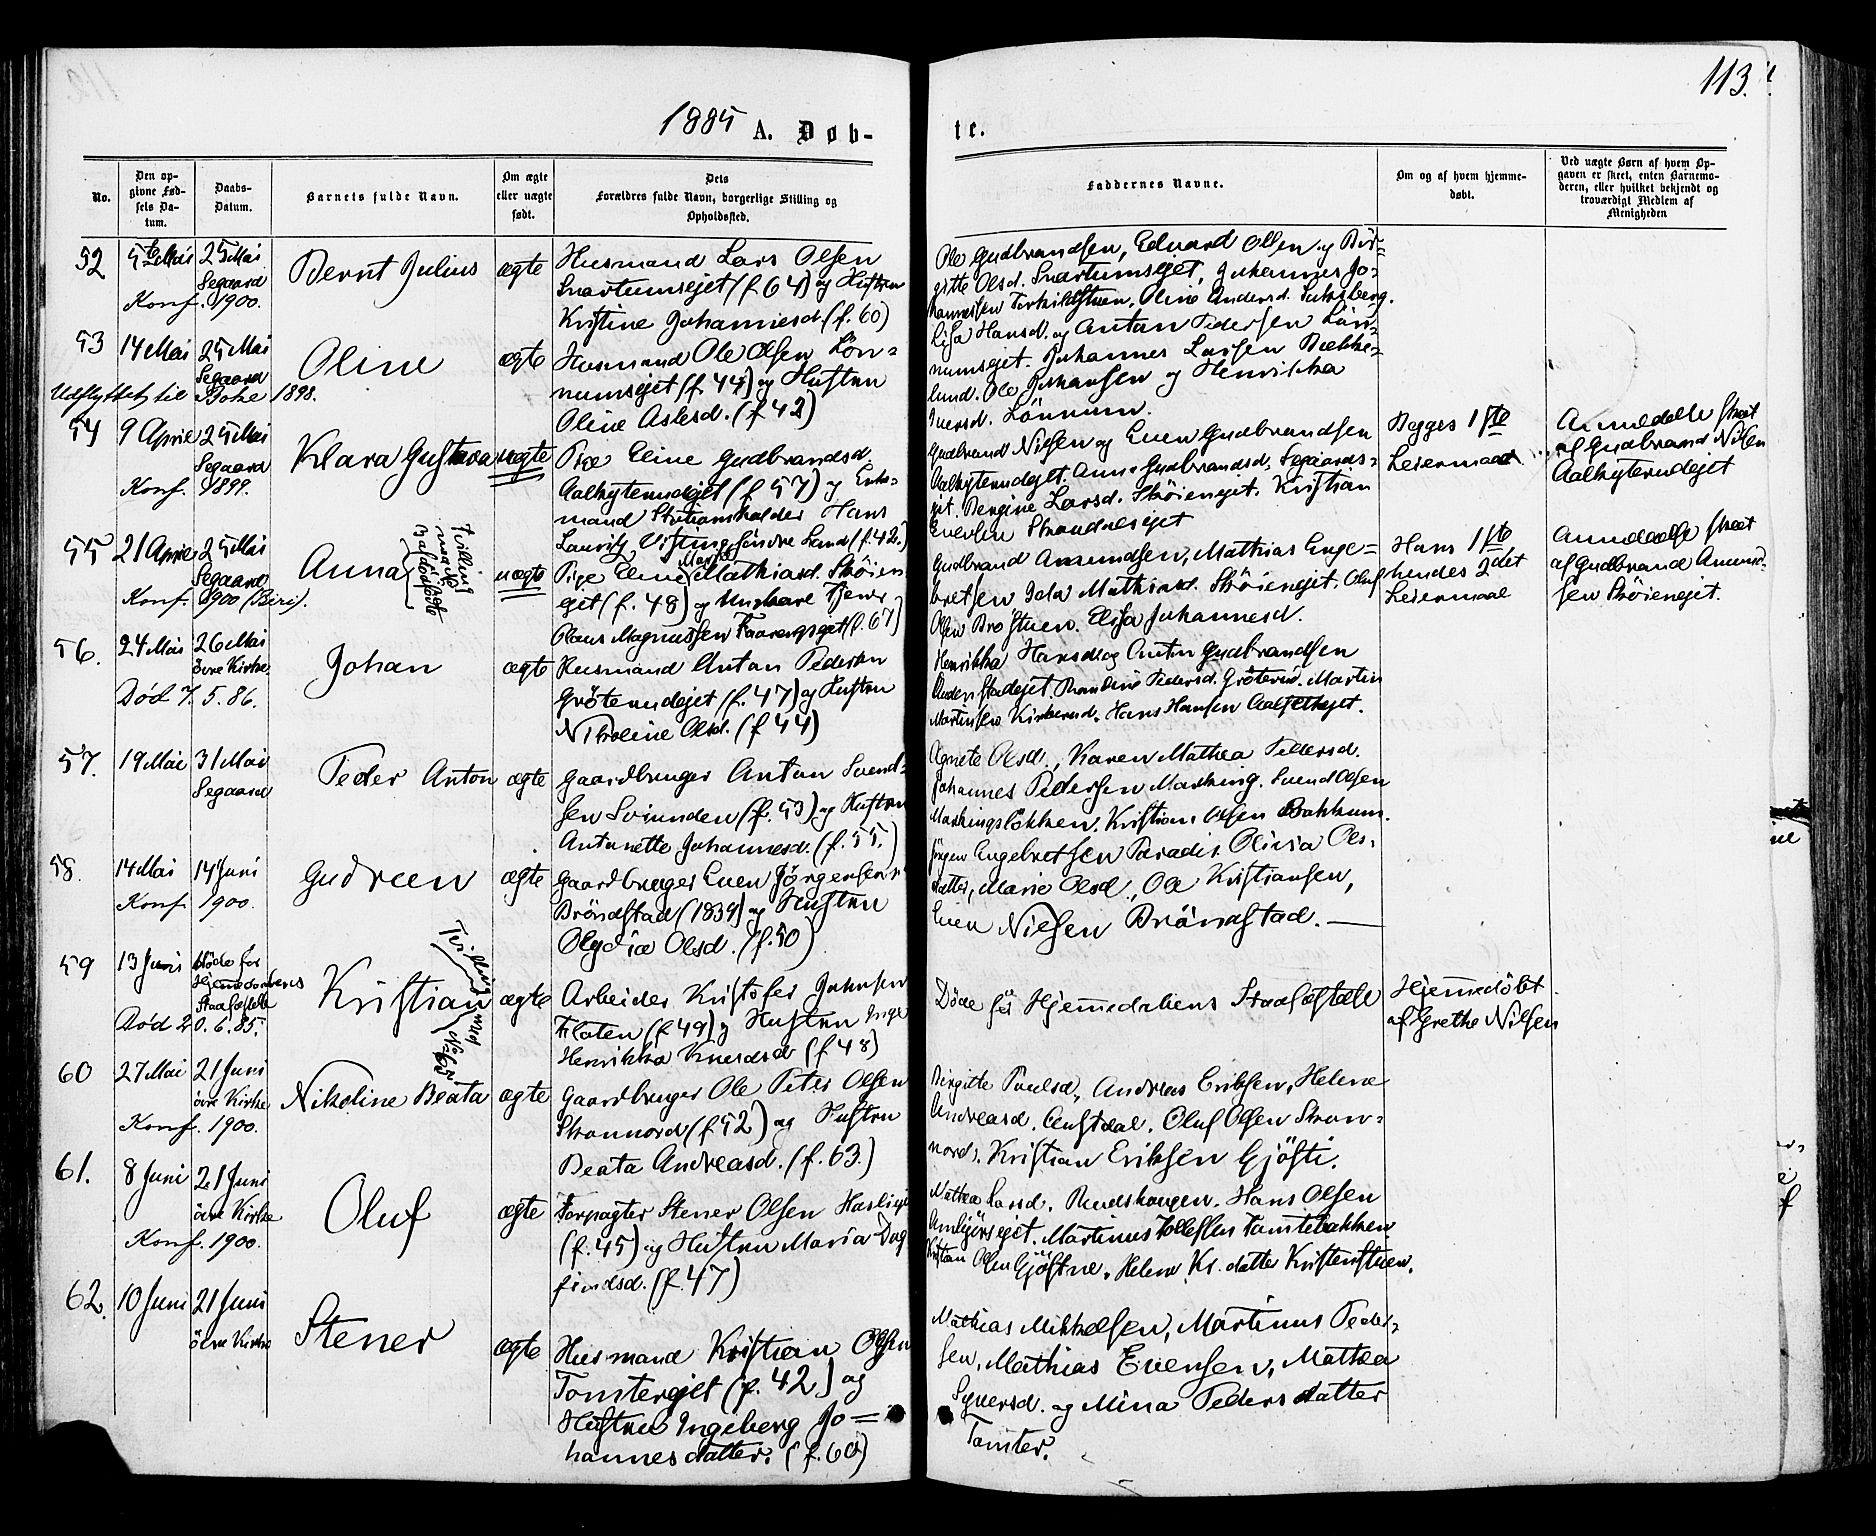 113.
1885 A. Døb-
te.
No.
Den op-
givne Fød-
sels Da-
tum.
Daabs-
Datum.
Barnets fulde Navn.
Om ægte
eller uægte
født.
Dets
Forældres fulde Navn, borgerlige Stilling og
Opholdssted.
Faddernes Navne.
Om og af hvem hjemme-
døbt.
Ved uægte Børn af hvem Op-
gaven er skeet, enten Barnemo-
deren, eller hvilket bekjendt og
troværdigt Medlem af
Menigheden
52
5te Mai
25 Mai
Segaard
Konf. 1900.
Bernt Julius
ægte
Husmand Lars Olsen
Snartumsejet (f. 64) og Hustru
Kristine Johannesd. (f. 60)
Ole Gudbrandsen, Edvard Olsen og Bir-
gitte Olsd. Snartumsejet, Johannes Jo-
hannessen Oline Andersd.
53
14 Mai
25 Mai
Segaard
Udflyttet til Bøhe 1898.
Oline
ægte
Husmand Ole Olsen Lön-
numsejet (f. 44) og Hustru
Oline Aslesd. (f. 42)
Lisa Hansd. og Anton Pedersen Lön-
numsejet. Johannes Larsen Bække-
lund. Ole Johansen og Henrikka
Iversd. Lönnum.
54
9 April
25 Mai
Segaard
Konf. 1899.
Klara Gustava
uægte
Pige Eline Gudbrandsd.
Aalhyterudejet (f. 57) og Enke-
mand Stationsholder Hans
Lauritz Søndre Land (f. 42.)
Gudbrand Nilsen og Even Gudbrandsen
Aalhyterudejet. Anne Gudbrandsd. Segaards-
ejet. Bergine Larsd. Skøienejet. Kristian
Evensen Strandeejet
Begges 1ste
Leiermaal
Anmeldelse skeet
af Gudbrand Nilsen
Aalhyterudejet
55
21 April
25 Mai
Segaard
Konf. 1900 (Biri).
Anna
Tvilling
uægte
Pige Eline Marie Mathiasd. Skøien-
ejet (f. 48) og Ungkarl Tjener
Olaus Magnussen Faarevejet (f. 67)
Gudbrand Amundsen, Mathias Enge-
bretsen Ida Mathiasd. Skøienejet. Oluf
Olsen Brostuen. Elisa Johannesd.
Hans 1ste
hendes 2det
Leiermaal
Anmeldelse skeet
af Gudbrand Amund-
sen Skøienejet.
56.
24 Mai
26 Mai
övre Kirke.
Död 7. 5. 86.
Johan
ægte
Husmand Anton Pedersen
Gröterudejet (f. 47) og Hustru
Nikoline Olsd. (f. 44)
Henrikka Hansd. og Anton Gudbrandsen
Pedersd. Gröterud. Martin
Martinsen Kirkerud. Hans Hansen
57.
19 Mai
31 Mai
Segaard
Peder Anton
ægte
Gaardbruger Anton Svend-
sen Svienden (f. 53) og Hustru
Antonette Johannesd. (f. 55.)
Agnete Olsd., Karen Mathea Pedersd.
Johannes Pedersen Mashing. Svend Olsen
Mashingslökken. Kristian Olsen Bakkum.
58.
14 Mai
14 Juni
Konf. 1900.
Gudruen
ægte
Gaardbruger Even Jörgensen
Bröndstad (1834) og Hustru
Olydia Olsd. (f. 50)
Jörgen Engebretsen Paradis. Olivia Ols-
datter, Marie Olsd., Ole Kristiansen,
Even Nielsen Bröndstad.
59
13 Juni
Döde før
Hjemmedaabens
Stadfæstelse
Död 20. 6. 85.
Kristian
Tvilling med No 65
ægte
Arbeider Kristofer Johnsen
Flaten (f. 49) og Hustru Inge
Henrikka Knudsd (f. 48)
Döde før Hjemmedabens Stadfæstelse
Hjemmedöbt
af Grethe Nilsen
60
27 Mai
21 Juni
övre Kirke
Konf. 1900.
Nikoline Beata
ægte
Gaardbruger Ole Peter Olsen
Skonnord (f. 52) og Hustru
Beata Andreasd. (f. 63.)
Birgitte Paulsd., Andreas Eriksen, Helene
Andreasd. Austdal. Oluf Olsen Skon-
nord. Kristian Eriksen Gjösti.
61.
8 Juni
21 Juni
övre Kirke
Konf. 1900.
Oluf
ægte
Forpagter Stener Olsen Haslie
(f. 45) og Hustru Maria Dag
findsd. (f. 47)
Mathea Larsd. Rudshaugen. Hans Olsen
Martinus Tollefsen Tomtebakken
Kristian Olsen Gjöstne. Helene Kr. datter Kristenstuen.
62.
10 Juni
21 Juni
övre Kirke
Stener
ægte
Husmand Kristian Olsen
Tomterejet (f. 42) og
Hustru Ingeborg Jo-
hannesdatter. (f. 60)
Mathias Mikkelsen, Martinus Peder-
sen, Mathias Evensen, Mathea
Syversd. og Mina Pedersdatter
Tomter.